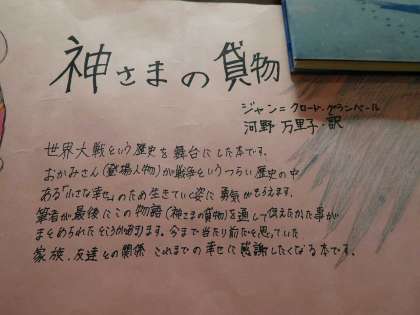 神さまの貨物
ジャン=クロード・グランベール
河野 万里子・訳
世界大戦という歴史を舞台にした本です。
おかみさん(登場人物)が戦争というつらい歴史の中
ある「小さな幸せ」のため生きていく姿に勇気がもらえます。
筆者が最後にこの物語(神さまの貨物)を通して伝えたかった事が
まとめられたところがあります。今まで当たり前だと思っていた
家族、友達との関係 これまでの幸せに感謝したくなる本です。